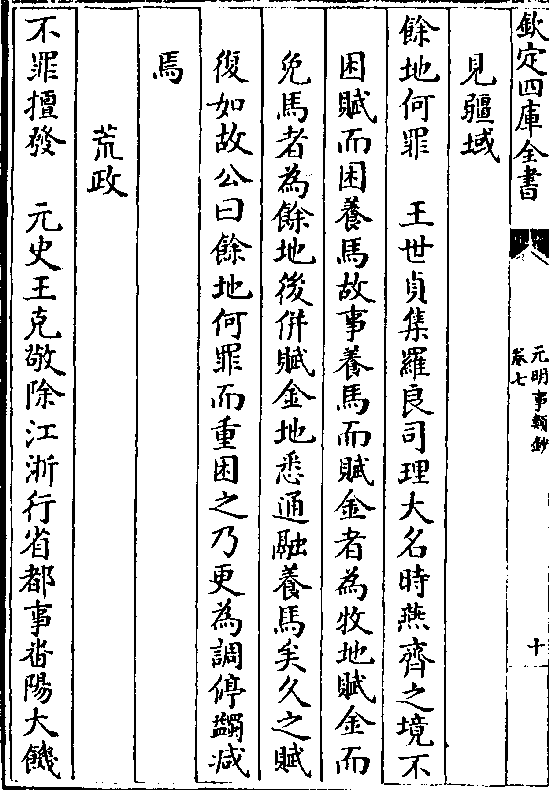 欽定四庫全書
元明事類鈔
卷七
十
見疆域
餘地何罪　王世貞集羅良司理大名時燕齊之境不
困賦而困養馬故事養馬而賦金者為牧地賦金而
免馬者為餘地後併賦金地悉通融養馬矣久之賦
復如故公曰餘地何罪而重困之乃更為調停蠲減
焉
荒政
不罪擅發　元史王克敬除江浙行省都事畨陽大饑